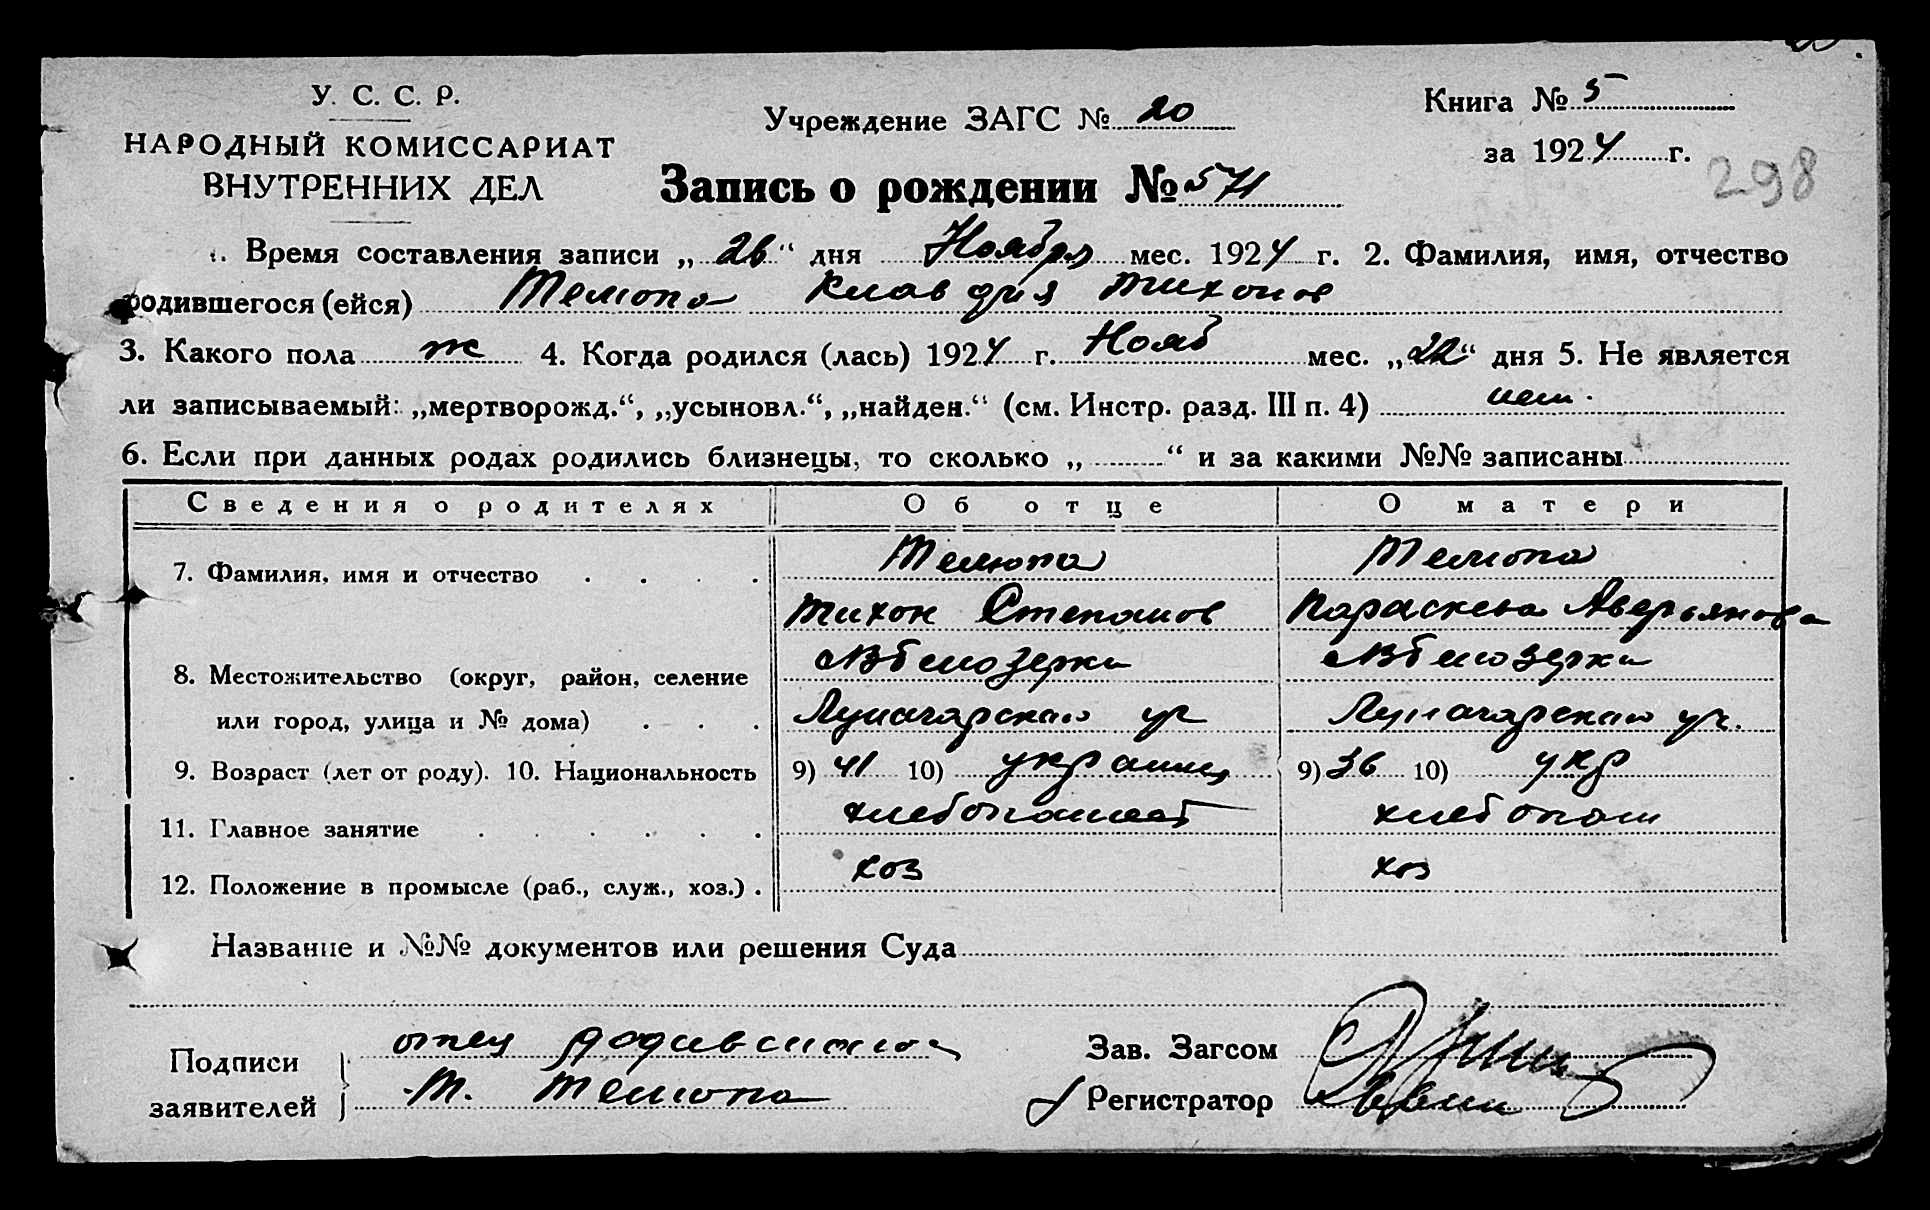 У. С. С. Р.
НАРОДНЫЙ КОМИССАРИАТ
ВНУТРЕННИХ ДЕЛ
Учреждение ЗАГС № 20
Книга № 5
за 1924 г.
298
Запись о рождении № 571
1. Время составления записи „26“ дня Ноября мес. 1924 г. 2. Фамилия, имя, отчество
родившегося (ейся) Телюпа Клавдия Тихонов
3. Какого пола ж 4. Когда родился (лась) 1924 г. Нояб мес. „22“ дня 5. Не является
ли записываемый: „мертворожд.“, „усыновл.“, „найден.“ (см. Инстр. разд. III п. 4) нет.
6. Если при данных родах родились близнецы, то сколько „ “ и за какими №№ записаны
Сведения о родителях Об отце О матери
7. Фамилия, имя и отчество Телюпа Телюпа
Тихон Степанов Параскева Аверьянова
8. Местожительство (округ, район, селение Белозерка Белозерка
или город, улица и № дома) Луначарского ул Луначарского ул.
9. Возраст (лет от роду). 10. Национальность 9) 41 10) украинц 9) 36 10) укр
11. Главное занятие хлебопашест хлебопаш
12. Положение в промысле (раб., служ., хоз.) хоз хоз
Название и №№ документов или решения Суда
Подписи заявителей
отец родившейся
Т. Телюпа
Зав. Загсом
Регистратор